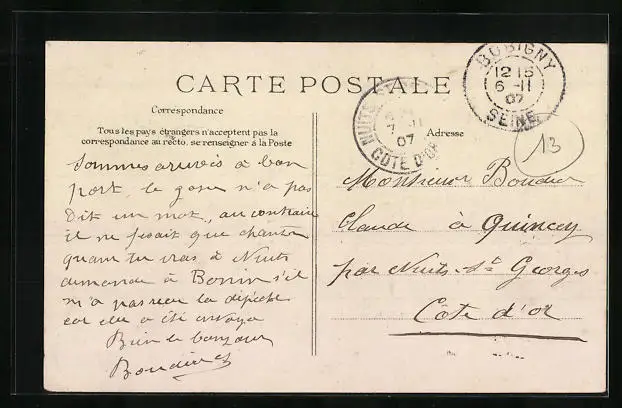 CARTE POSTALE
Correspondance
Tous les pays étrangers n'acceptent pas la
correspondance au recto. se renseigner à la Poste
Adresse
BOBIGNY
12 15
6 - 11
07
SEINE
NUITS
7 - 11
07
COTE D'OR
13
Sommes arrivés à bon
port, le gosse n'a pas
dit un mot, au contraire
il ne fesait que chanter
quant tu iras à Nuits
demande à Bonin s'il
n'a pas reçu la dépêche
car elle a été envoyé
Bien le bonjour
Monsieur Boudier
Claude à Quincey
par Nuits-St Georges
Côte d'or